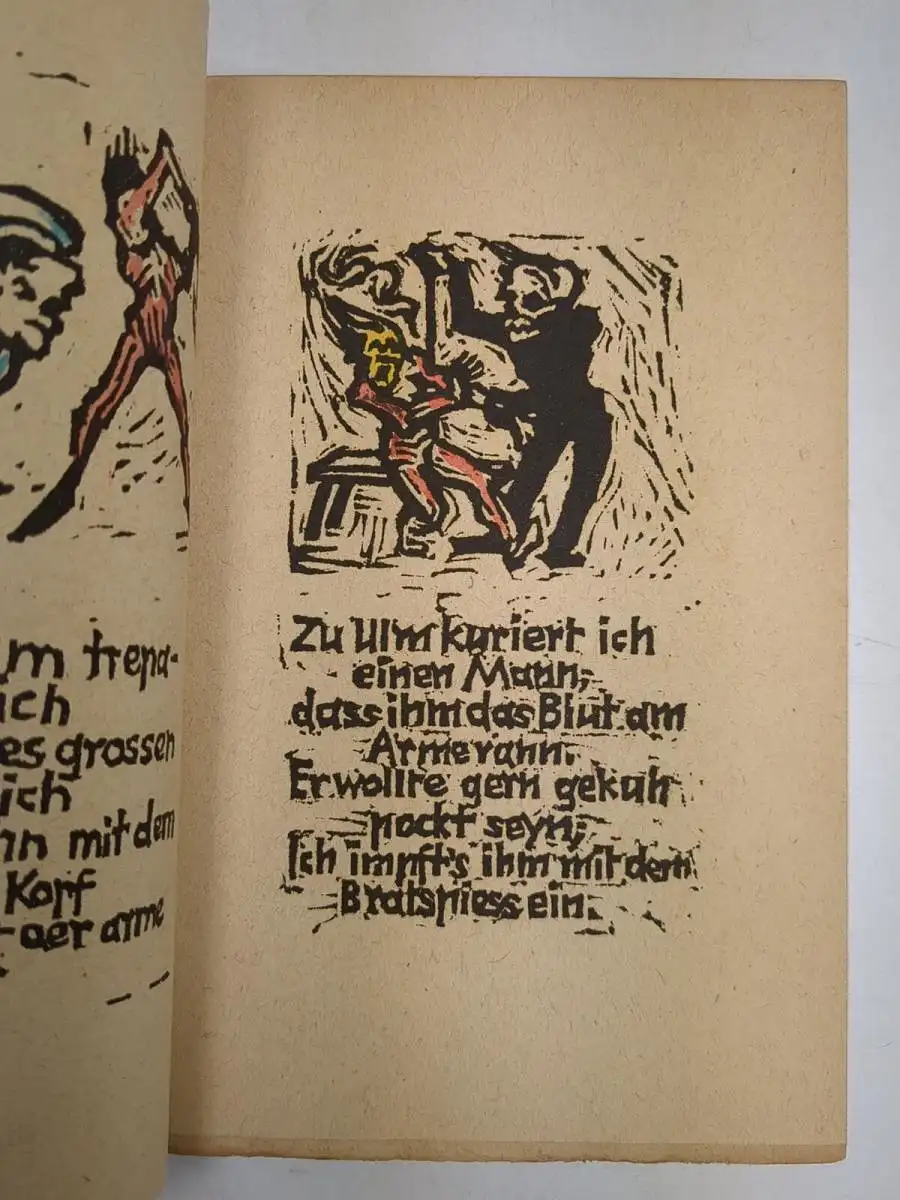 um trepa-
ich
es grossen
ich
nn mit dem
Kopf
der arme
Zu Ulm kuriert ich
einen Mann,
dass ihm das Blut am
Arme rann.
Er wollte gern gekuh
pockt seyn,
Ich impft's ihm mit dem
Bratspiess ein.